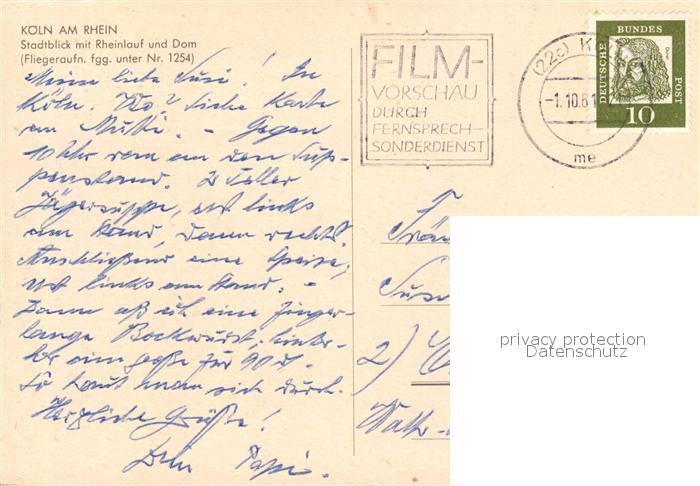 KÖLN AM RHEIN
Stadtblick mit Rheinlauf und Dom
(Fliegeraufn. fgg. unter Nr. 1254)
Meine liebe Susi! In
Köln. Wo? Siehe Karte
an Mutti. - Gegen
10 Uhr waren an den Sup-
penstand. 2 Teller
Jägersuppe, erst links
am Rand, dann rechts.
Anschließend eine Speise,
erst links am Rand. -
Dann aß ich eine finger-
lange Bockwurst, hinter-
her eine große für 90 d.
So haut man sich durch.
Herzliche Grüße!
Dein Papi.
FILM-
VORSCHAU
DURCH
FERNSPRECH-
SONDERDIENST
(22c) K
-1.10.61
me
DEUTSCHE BUNDES POST
10
Frä
Sus
2)
privacy protection
Datenschutz